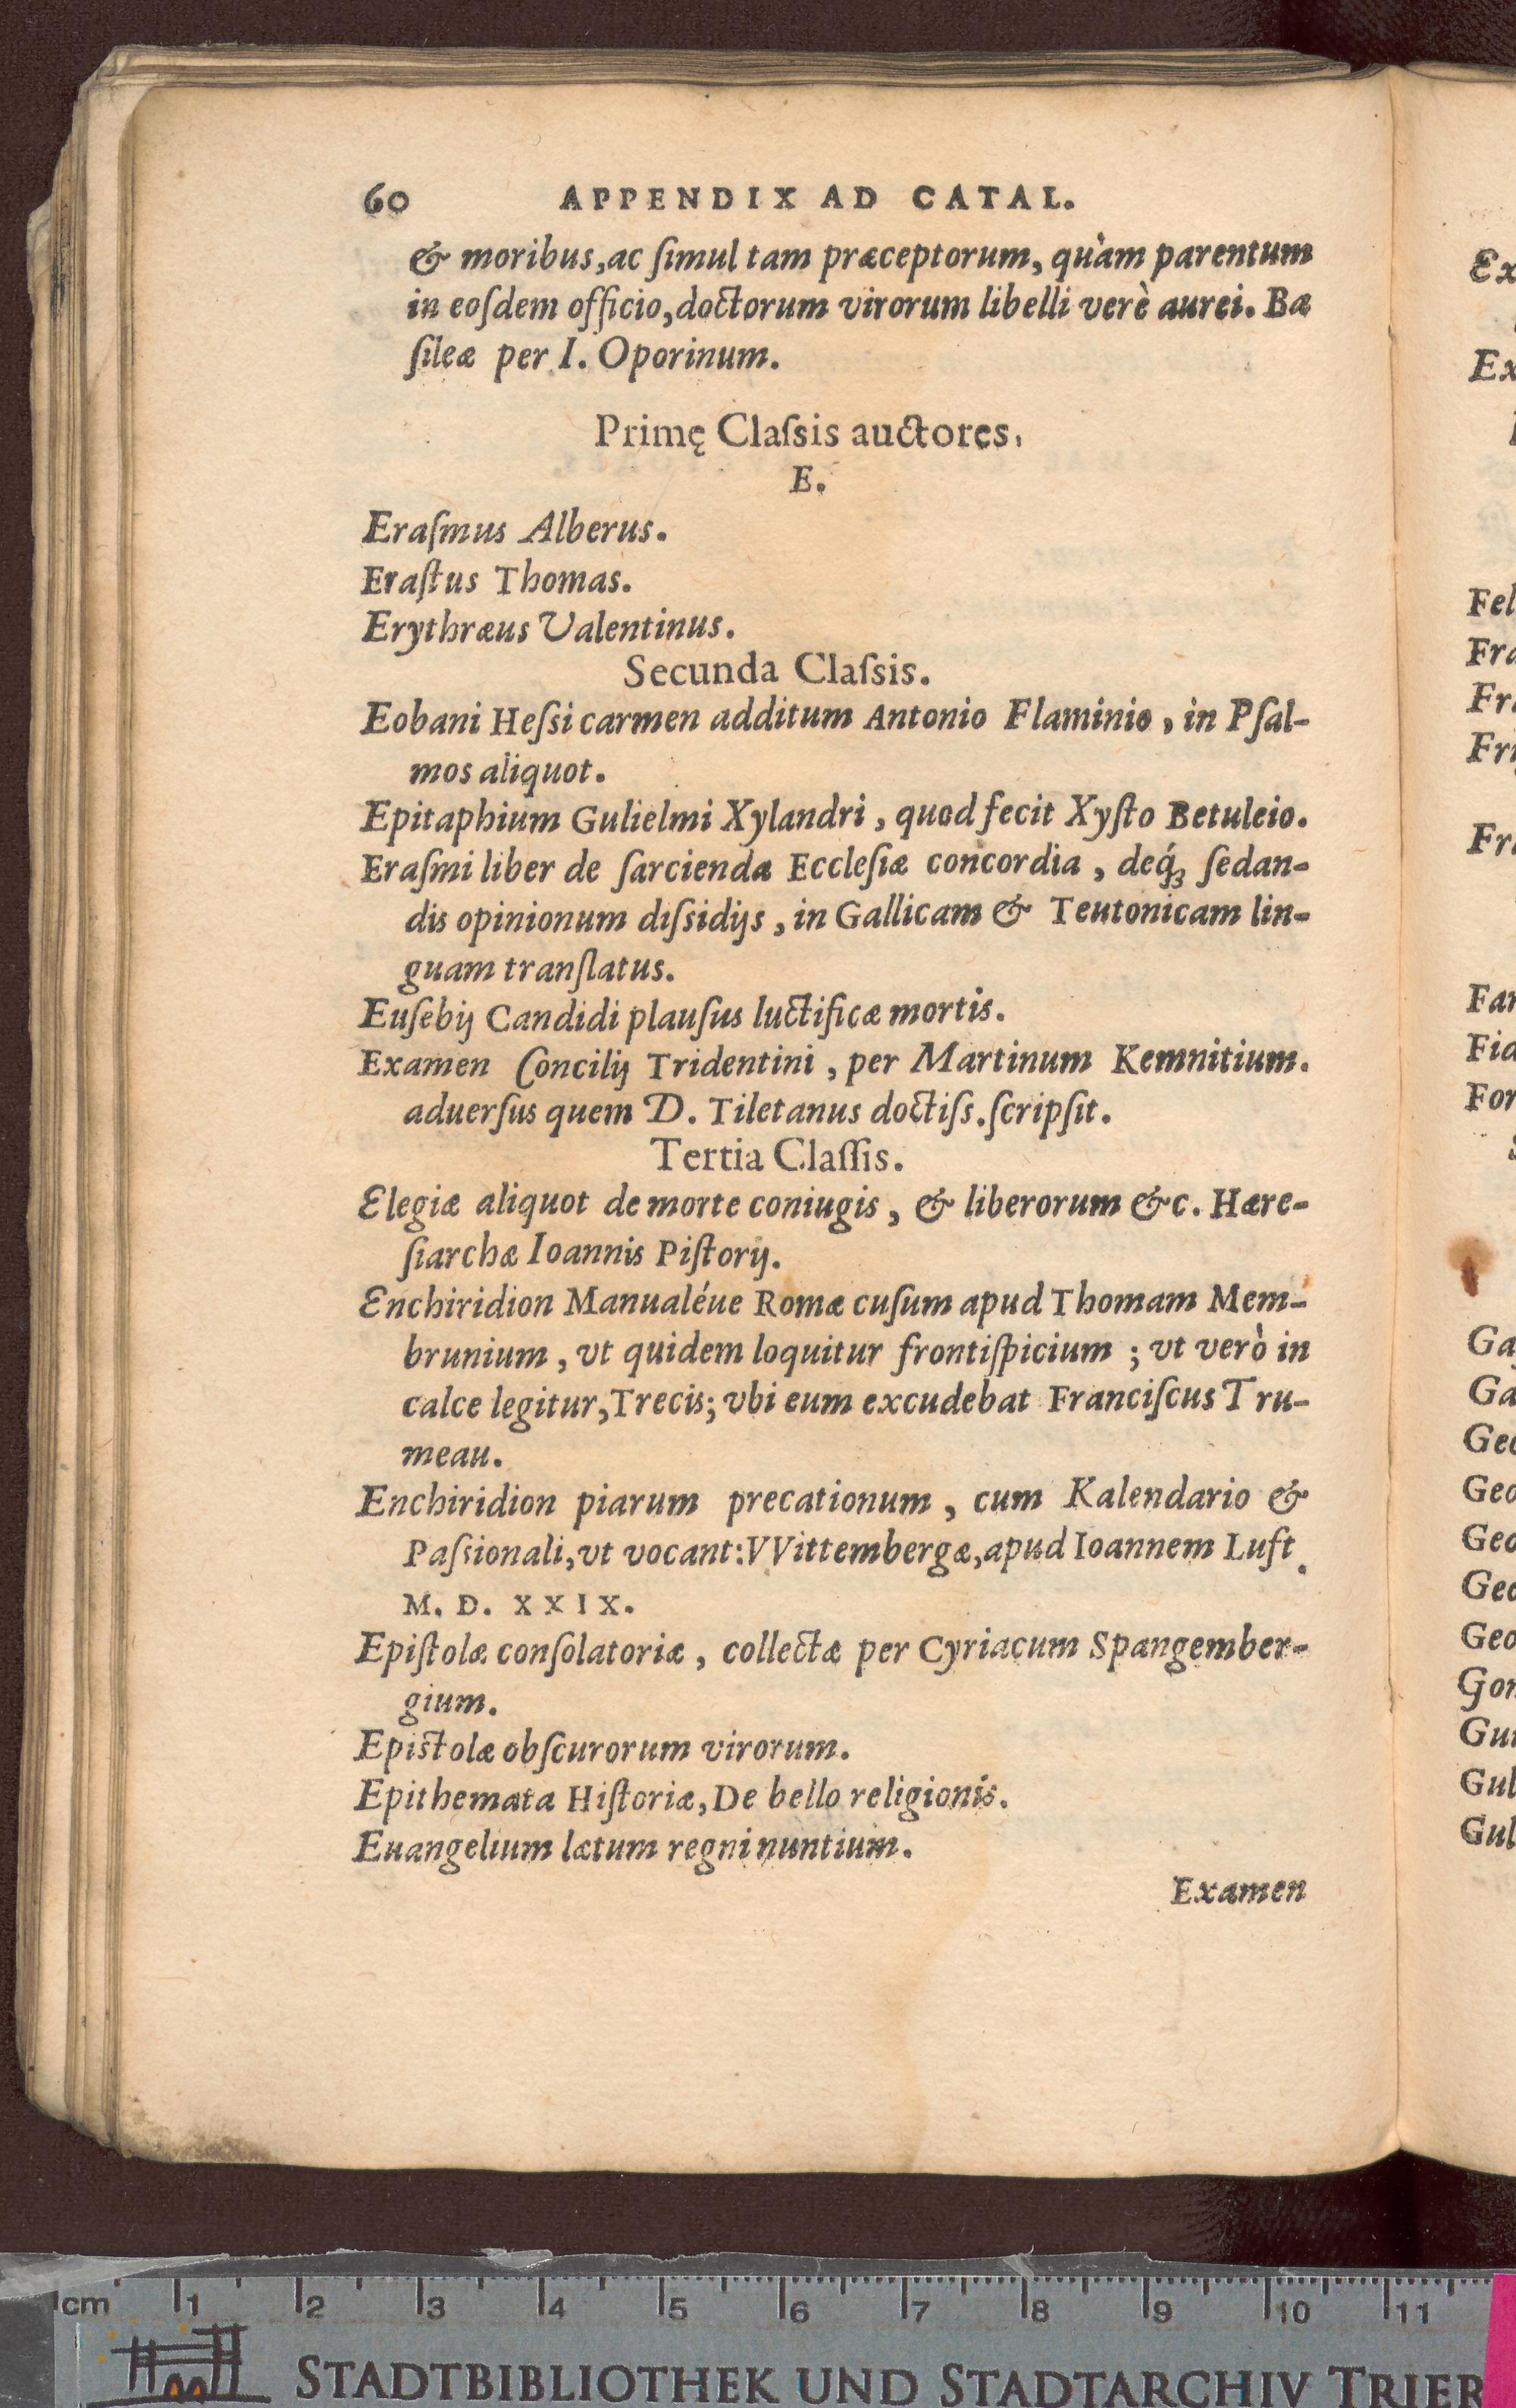 60 APPENDIX AD CATAL.
& moribus, ac ſimul tam præceptorum, quàm parentum
in eoſdem officio, doctorum virorum libelli verè aurei. Ba
ſileæ per I. Oporinum.
Primę Claſsis auctores.
E.
Eraſmus Alberus.
Eraſtus Thomas.
Erythræus Valentinus.
Secunda Claſsis.
Eobani Heſsi carmen additum Antonio Flaminio, in Pſal-
mos aliquot.
Epitaphium Gulielmi Xylandri, quod fecit Xyſto Betuleio.
Eraſmi liber de ſarcienda Eccleſiæ concordia, deq́ꝫ ſedan-
dis opinionum diſsidijs, in Gallicam & Teutonicam lin-
guam tranſlatus.
Euſebij Candidi plauſus luctificæ mortis.
Examen Concilij Tridentini, per Martinum Kemnitium.
aduerſus quem D. Tiletanus doctiſs. ſcripſit.
Tertia Claſſis.
Elegiæ aliquot de morte coniugis, & liberorum &c. Hære-
ſiarchæ Ioannis Piſtorij.
Enchiridion Manualéue Romæ cuſum apud Thomam Mem-
brunium, vt quidem loquitur frontiſpicium; vt verò in
calce legitur, Trecis; vbi eum excudebat Franciſcus Tru-
meau.
Enchiridion piarum precationum, cum Kalendario &
Paſsionali, vt vocant: VVittembergæ, apud Ioannem Luft.
M. D. XXIX.
Epiſtolæ conſolatoriæ, collectæ per Cyriacum Spangember-
gium.
Epiſtolæ obſcurorum virorum.
Epithemata Hiſtoriæ, De bello religionis.
Euangelium lætum regni nuntium.
Examen
Ex
Ex
Fel
Fra
Fr
Fri
Fr
Far
Fia
For
Ga
Ga
Geo
Geo
Geo
Geo
Geo
Gon
Gui
Gul
Gul
cm 1 2 3 4 5 6 7 8 9 10 11
STADTBIBLIOTHEK UND STADTARCHIV TRIER